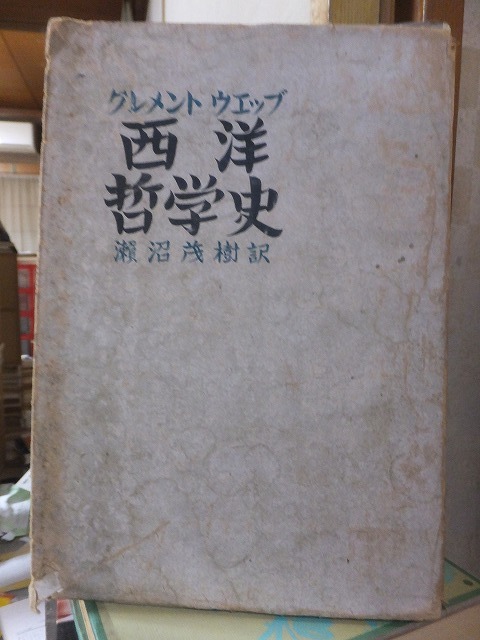 クレメント ウエッブ
西洋
哲学史
瀬沼茂樹訳